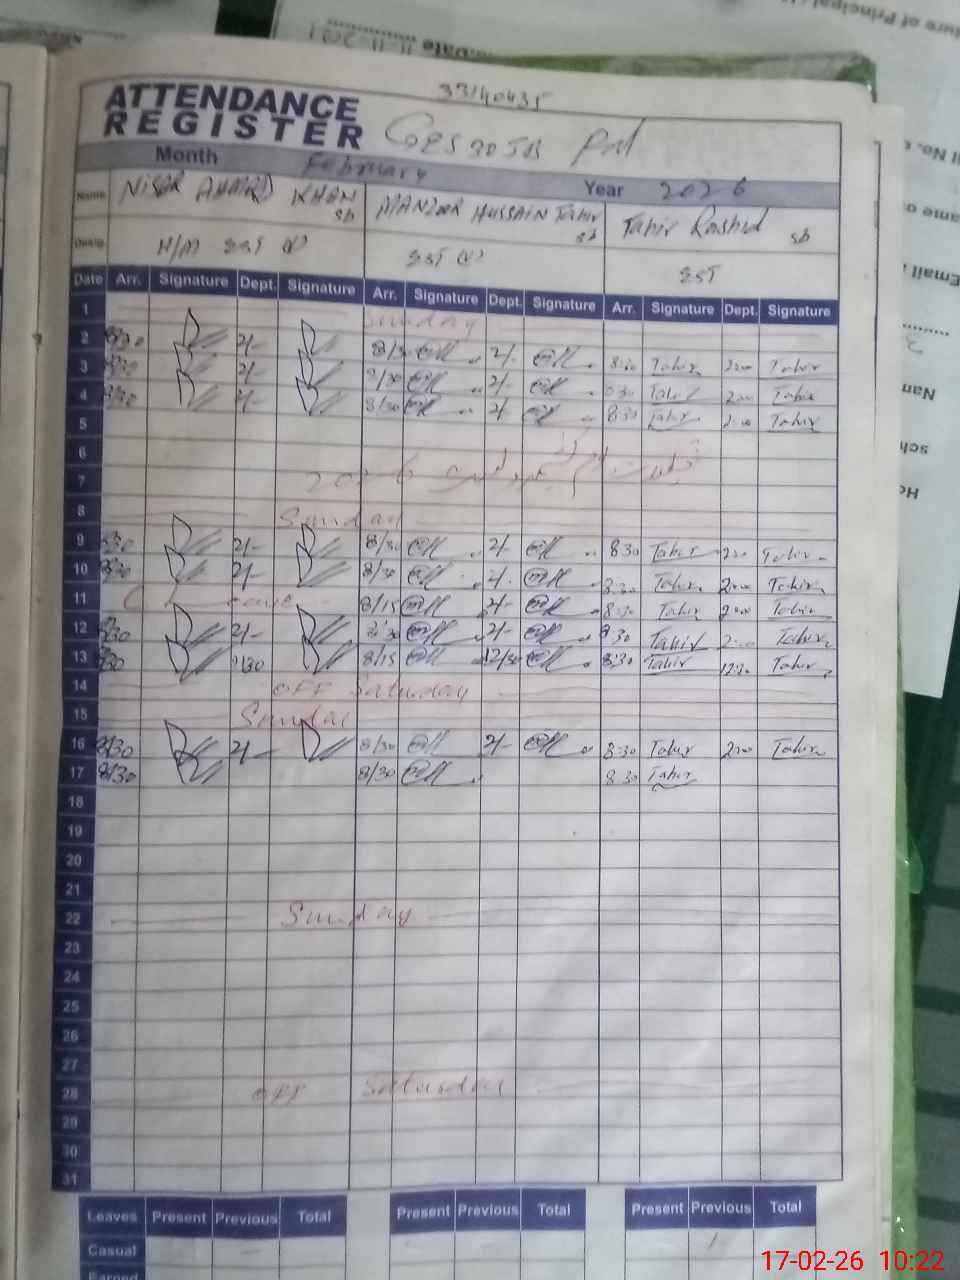 33140435
ATTENDANCE
REGISTER
Month February Year 2026
Name NISAR AHMAD KHAN sb MANZOOR HUSSAIN Tahir sb Tahir Rashid sb
Desig. H/M SST SST SST
Date Arr. Signature Dept. Signature Arr. Signature Dept. Signature Arr. Signature Dept. Signature
1 Sunday
2 8/30 2/- 8/30 2/- 8:30 Tahir 2:00 Tahir
3 8/30 2/- 8/30 2/- 8:30 Tahir 2:00 Tahir
4 8/30 2/- 8/30 2/- 8:30 Tahir 2:00 Tahir
5
6
7 2026
8 Sunday
9 8/30 2/- 8/30 2/- 8:30 Tahir 2:00 Tahir
10 8/30 2/- 8/30 2/- 8:30 Tahir 2:00 Tahir
11 C Leave 8/15 2/- 8:30 Tahir 2:00 Tahir
12 8/30 2/- 8/30 2/- 8:30 Tahir 2:00 Tahir
13 8/30 8/15 12/30 8:30 Tahir 12:30 Tahir
14 OFF Saturday
15 Sunday
16 8/30 2/- 8/30 2/- 8:30 Tahir 2:00 Tahir
17 8/30 8/30 8:30 Tahir
18
19
20
21
22 Sunday
23
24
25
26
27
28 OFF Saturday
29
30
31
Leaves Present Previous Total Present Previous Total Present Previous Total
Casual 1
Earned
17-02-26 10:22